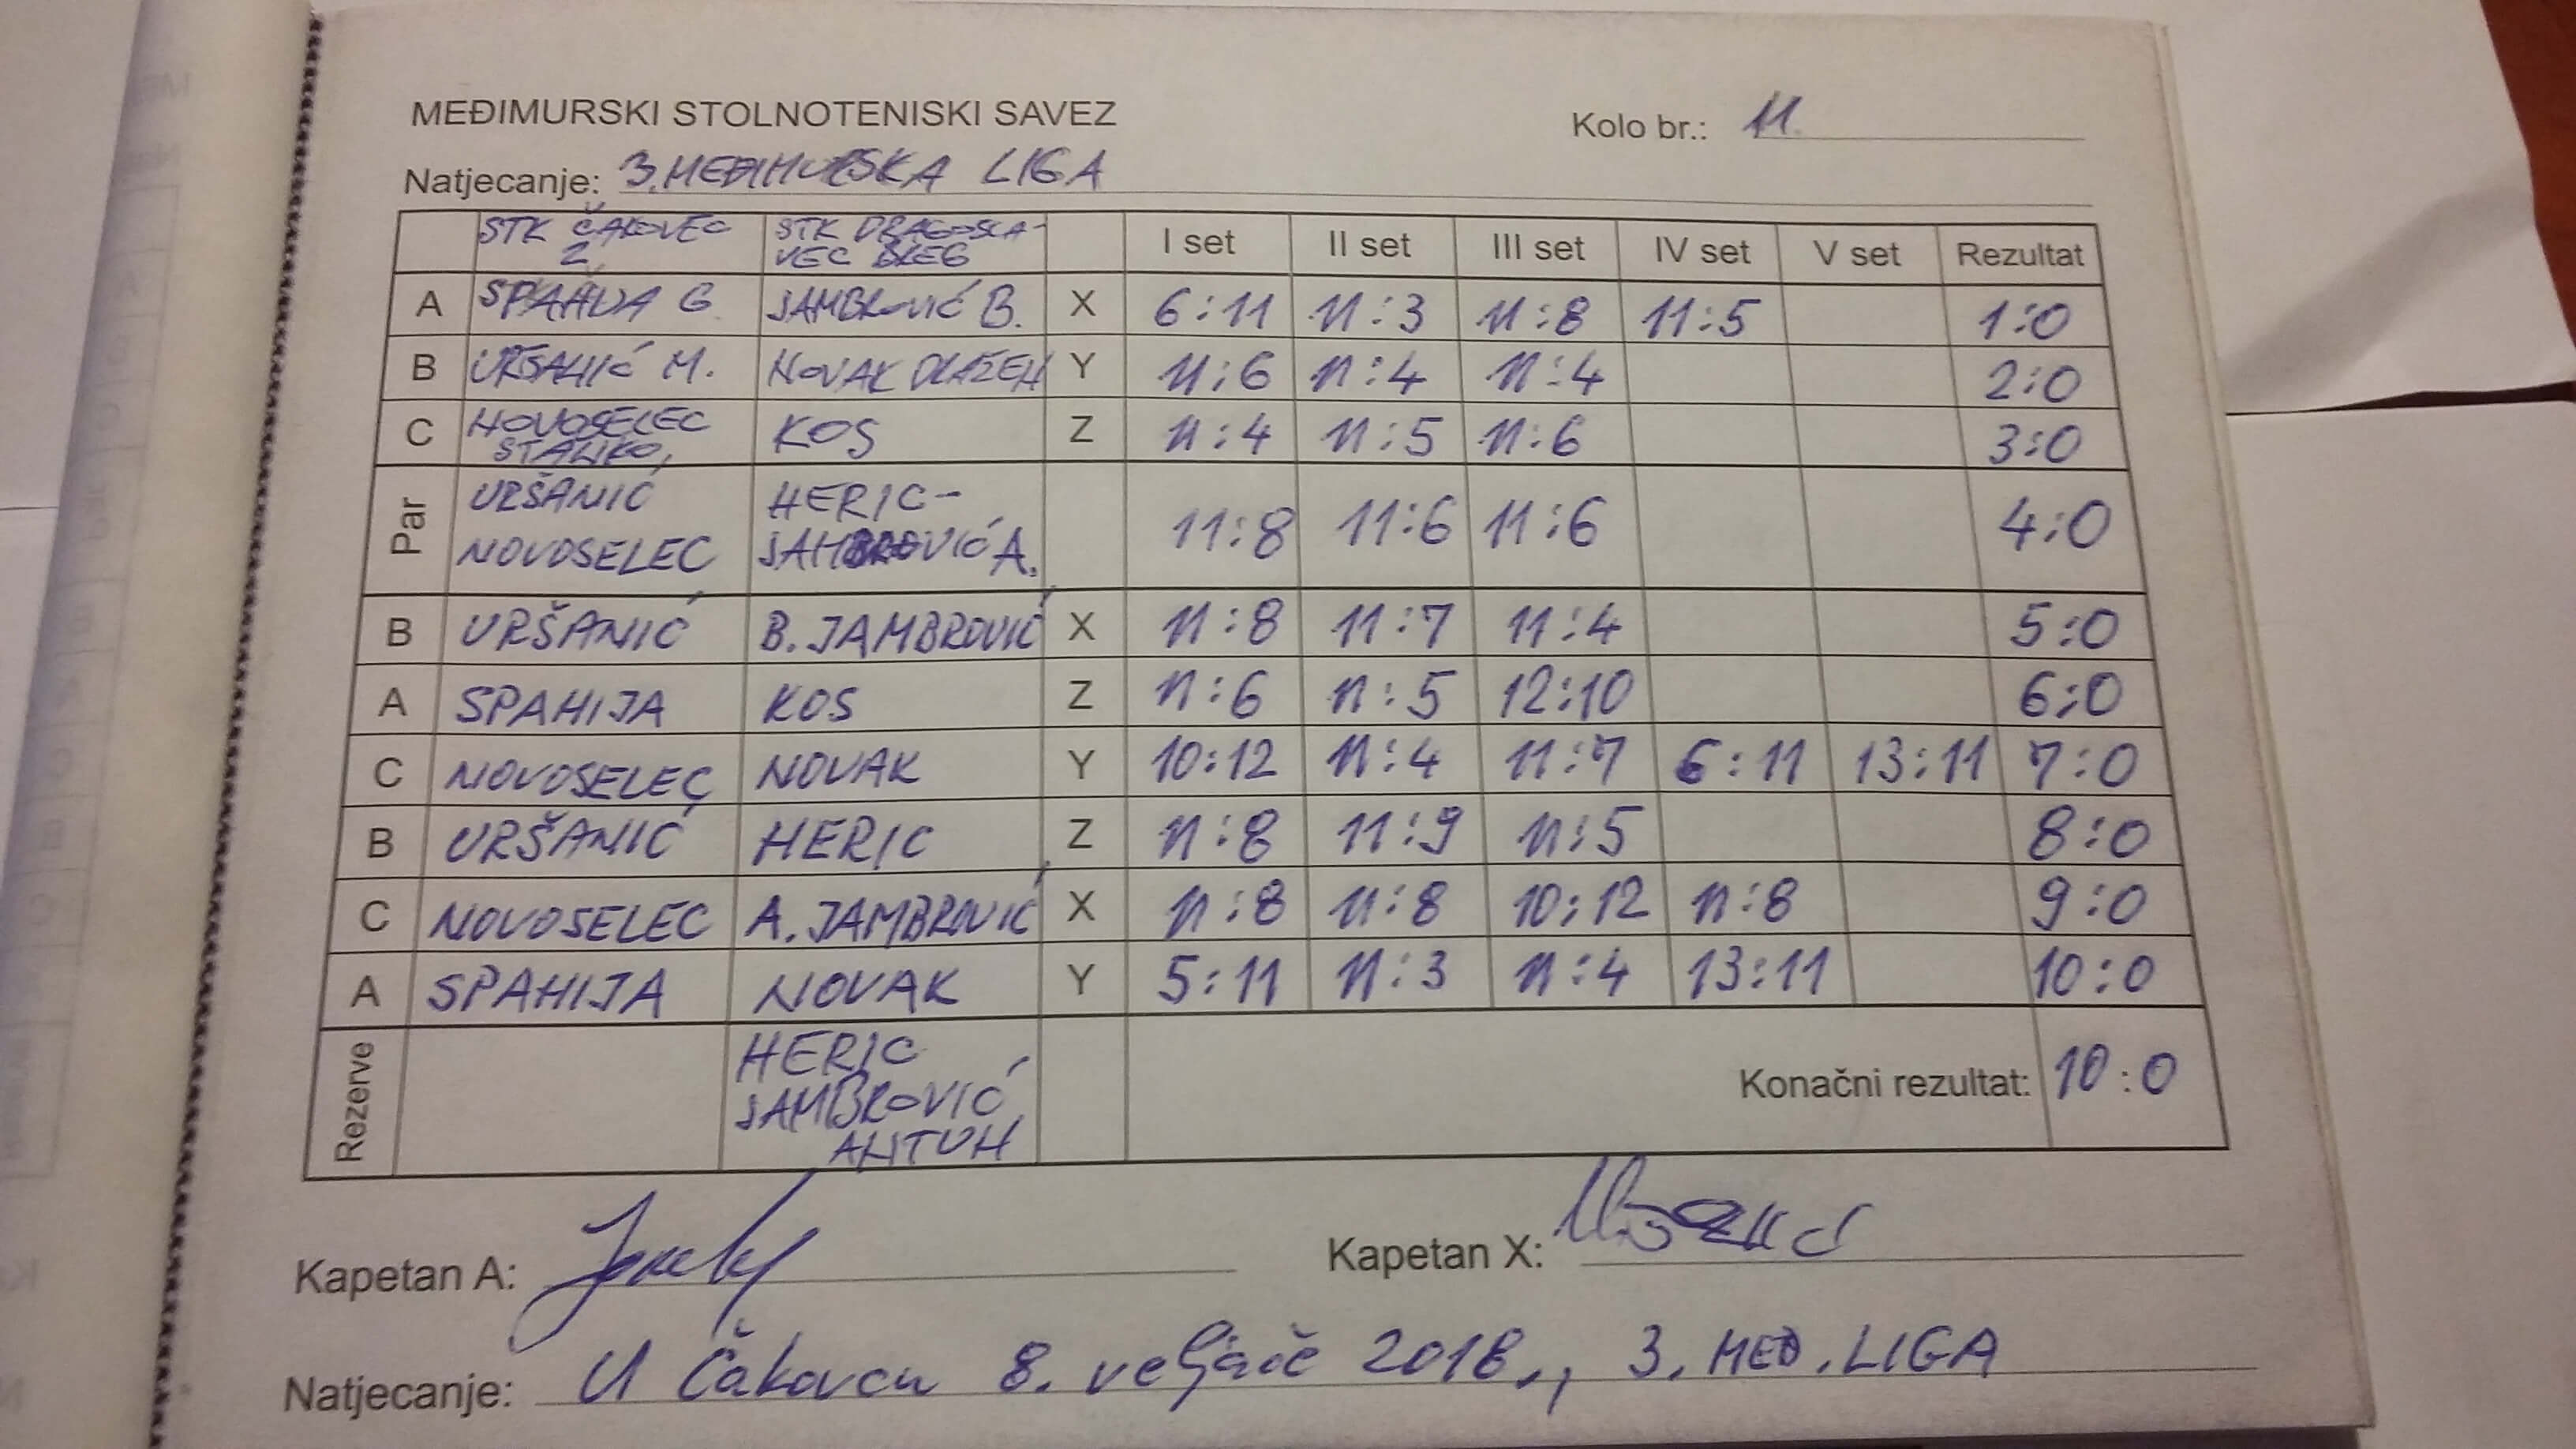 MEĐIMURSKI STOLNOTENISKI SAVEZ
Kolo br.: 11.
Natjecanje: 3. MEĐIMURSKA LIGA
STK ČAKOVEC 2 STK DRAGOSLA-VEC BREG I set II set III set IV set V set Rezultat
A SPAHIJA G. JAMBROVIĆ B. X 6:11 11:3 11:8 11:5 1:0
B URŠANIĆ M. NOVAK DRAŽEN Y 11:6 11:4 11:4 2:0
C NOVOSELEC STANKO, KOS Z 11:4 11:5 11:6 3:0
Par URŠANIĆ HERIC-
NOVOSELEC JAMBROVIĆ A. 11:8 11:6 11:6 4:0
B URŠANIĆ B. JAMBROVIĆ X 11:8 11:7 11:4 5:0
A SPAHIJA KOS Z 11:6 11:5 12:10 6:0
C NOVOSELEC NOVAK Y 10:12 11:4 11:7 6:11 13:11 7:0
B URŠANIĆ HERIC Z 11:8 11:9 11:5 8:0
C NOVOSELEC A. JAMBROVIĆ X 11:8 11:8 10:12 11:8 9:0
A SPAHIJA NOVAK Y 5:11 11:3 11:4 13:11 10:0
Rezerve HERIC
JAMBROVIĆ
ANTUN
Konačni rezultat: 10:0
Kapetan A:
Kapetan X:
Natjecanje: U Čakovcu 8. veljače 2018., 3. MEĐ. LIGA